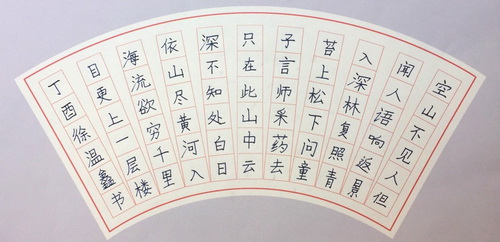 空山不见人但
闻人语响返景
入深林复照青
苔上松下问童
子言师采药去
只在此山中云
深不知处白日
依山尽黄河入
海流欲穷千里
目更上一层楼
丁酉徐温鑫书